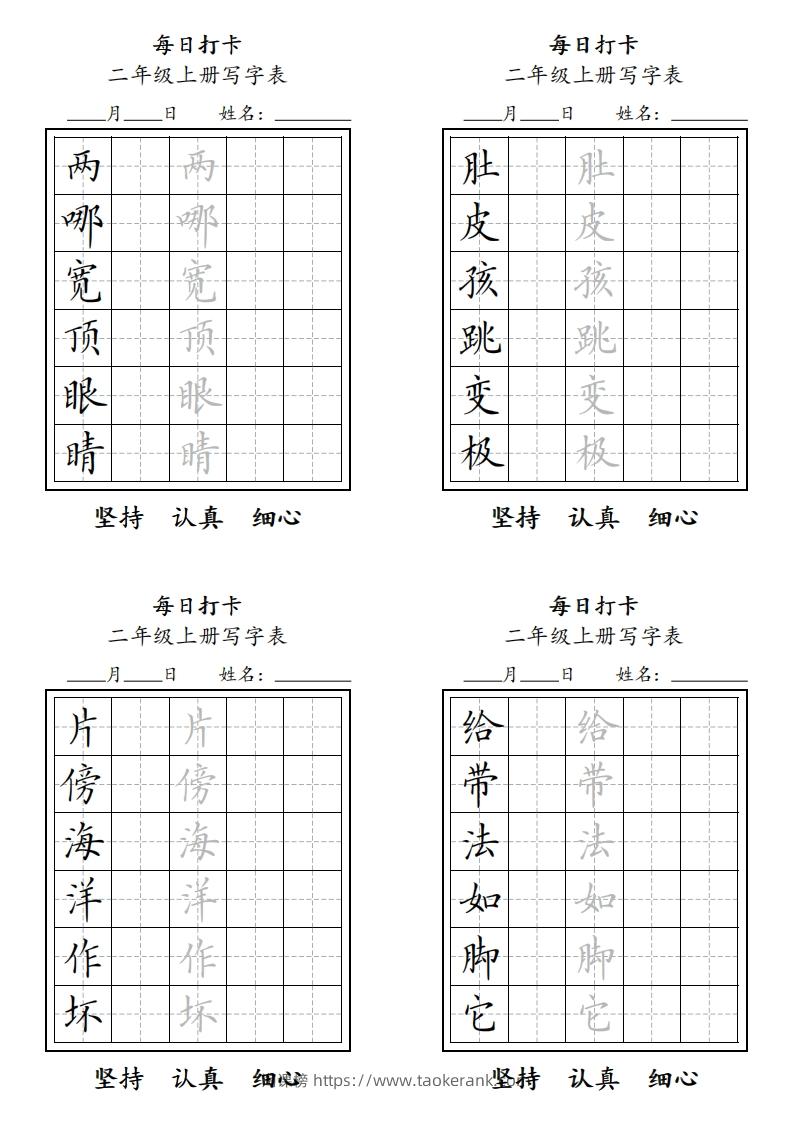 每日打卡
二年级上册写字表
____月____日 姓名：________
两 两
哪 哪
宽 宽
顶 顶
眼 眼
睛 睛
坚持 认真 细心
每日打卡
二年级上册写字表
____月____日 姓名：________
肚 肚
皮 皮
孩 孩
跳 跳
变 变
极 极
坚持 认真 细心
每日打卡
二年级上册写字表
____月____日 姓名：________
片 片
傍 傍
海 海
洋 洋
作 作
坏 坏
坚持 认真 细心
每日打卡
二年级上册写字表
____月____日 姓名：________
给 给
带 带
法 法
如 如
脚 脚
它 它
坚持 认真 细心
课榜 https://www.taokerank.com